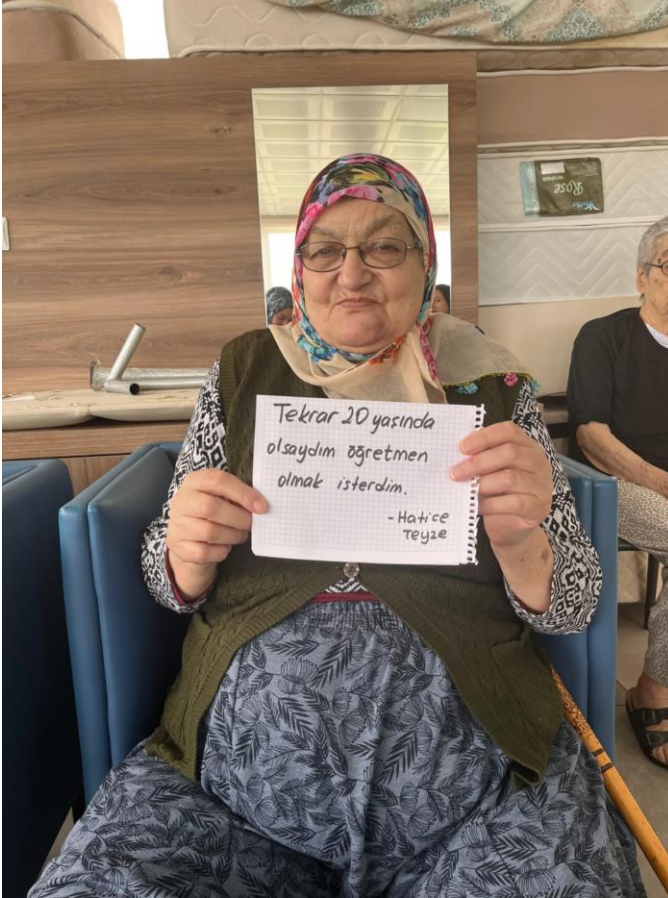 Tekrar 20 yaşında
olsaydım öğretmen
olmak isterdim.
- Hatice
Teyze
Rose